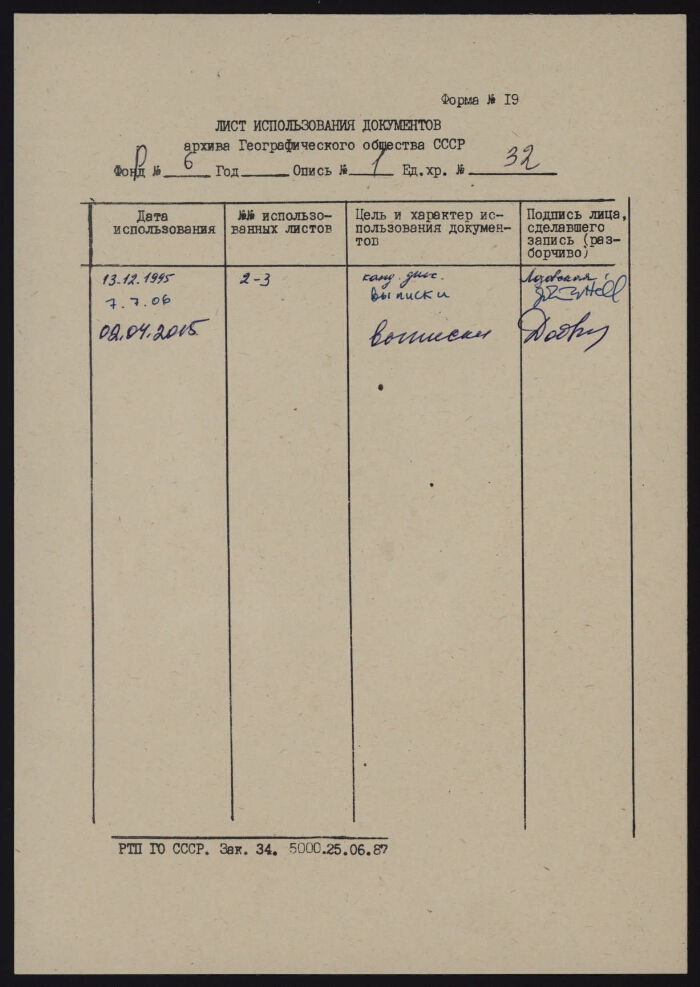 Форма № I9
ЛИСТ ИСПОЛЬЗОВАНИЯ ДОКУМЕНТОВ
архива Географического общества СССР
Фонд № 6 Год Опись № 1 Ед.хр. № 32
Дата
использования
№№ использо-
ванных листов
Цель и характер ис-
пользования докумен-
тов
Подпись лица,
сделавшего
запись (раз-
борчиво)
13.12.1995 2-3 канд. дисс.
7.7.06 выписки
02.04.2015 выписки
РТП ГО СССР. Зак. 34. 5000.25.06.87